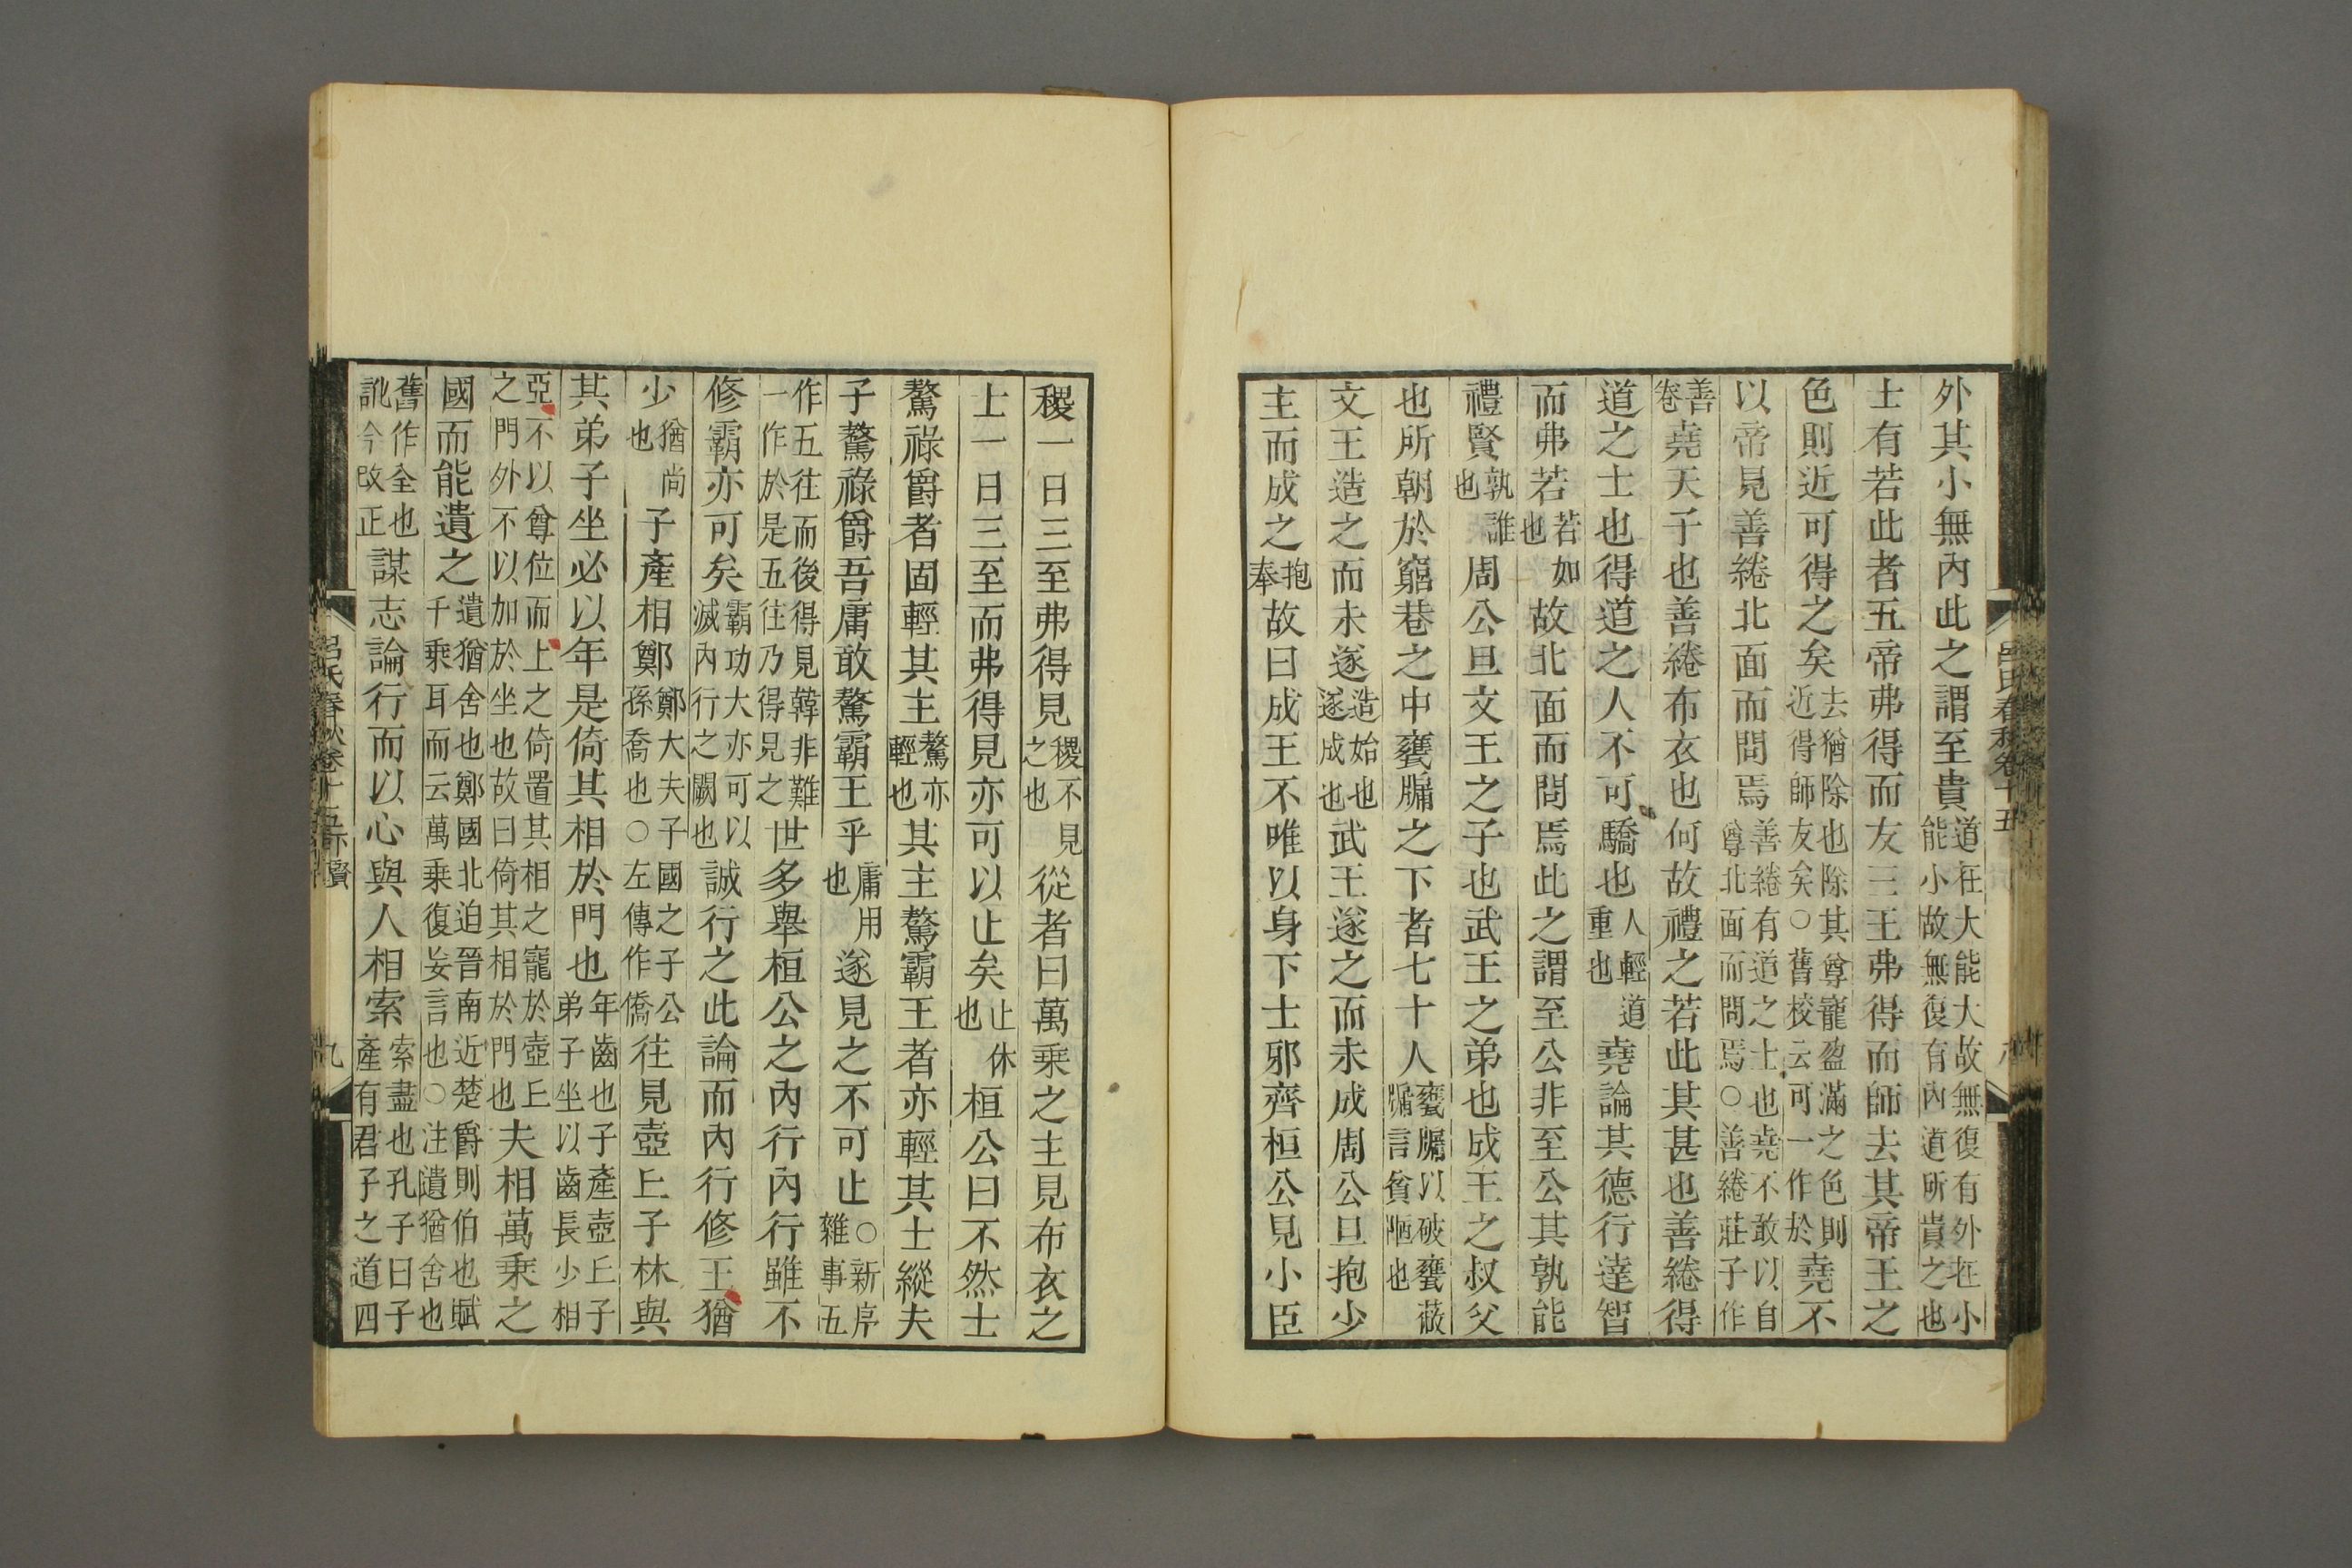 外其小無內此之謂至貴道在大能大故無復有外在小能小故無復有內道所貴之也
士有若此者五帝弗得而友三王弗得而師去其帝王之
色則近可得之矣去猶除也除其尊寵盈滿之色則近得師友矣○舊校云可一作於堯不
以帝見善綣北面而問焉善綣有道之士也堯不敢以自尊北面而問焉○善綣莊子作
善卷堯天子也善綣布衣也何故禮之若此其甚也善綣得
道之士也得道之人不可驕也人輕道重也堯論其德行達智
而弗若若如也故北面而問焉此之謂至公非至公其孰能
禮賢孰誰也周公旦文王之子也武王之弟也成王之叔父
也所朝於窮巷之中甕牖之下者七十人甕牖以破甕蔽牖言貧陋也
文王造之而未遂造始也遂成也武王遂之而未成周公旦抱少
主而成之抱奉故曰成王不唯以身下士邪齊桓公見小臣
呂氏春秋卷十五
稷一日三至弗得見稷不見之也從者曰萬乘之主見布衣之
士一日三至而弗得見亦可以止矣止休也桓公曰不然士
驁祿爵者固輕其主驁亦輕也其主驁霸王者亦輕其士縱夫
子驁祿爵吾庸敢驁霸王乎庸用也遂見之不可止○新序雜事五
作五往而後得見韓非難一作於是五往乃得見之世多舉桓公之內行內行雖不
修霸亦可矣霸功大亦可以滅內行之闕也誠行之此論而內行修王猶
少猶尚也子產相鄭鄭大夫子國之子公孫喬也○左傳作僑往見壺丘子林與
其弟子坐必以年是倚其相於門也年齒也子產壺丘子弟子坐以齒長少相
亞不以尊位而上之倚置其相之寵於壺丘之門外不以加於坐也故曰倚其相於門也夫相萬乘之
國而能遺之遺猶舍也鄭國北迫晉南近楚爵則伯也賦千乘耳而云萬乘復妄言也○注遺猶舍也
舊作全也訛今改正謀志論行而以心與人相索索盡也孔子曰子產有君子之道四
呂氏春秋卷十五下賢
九